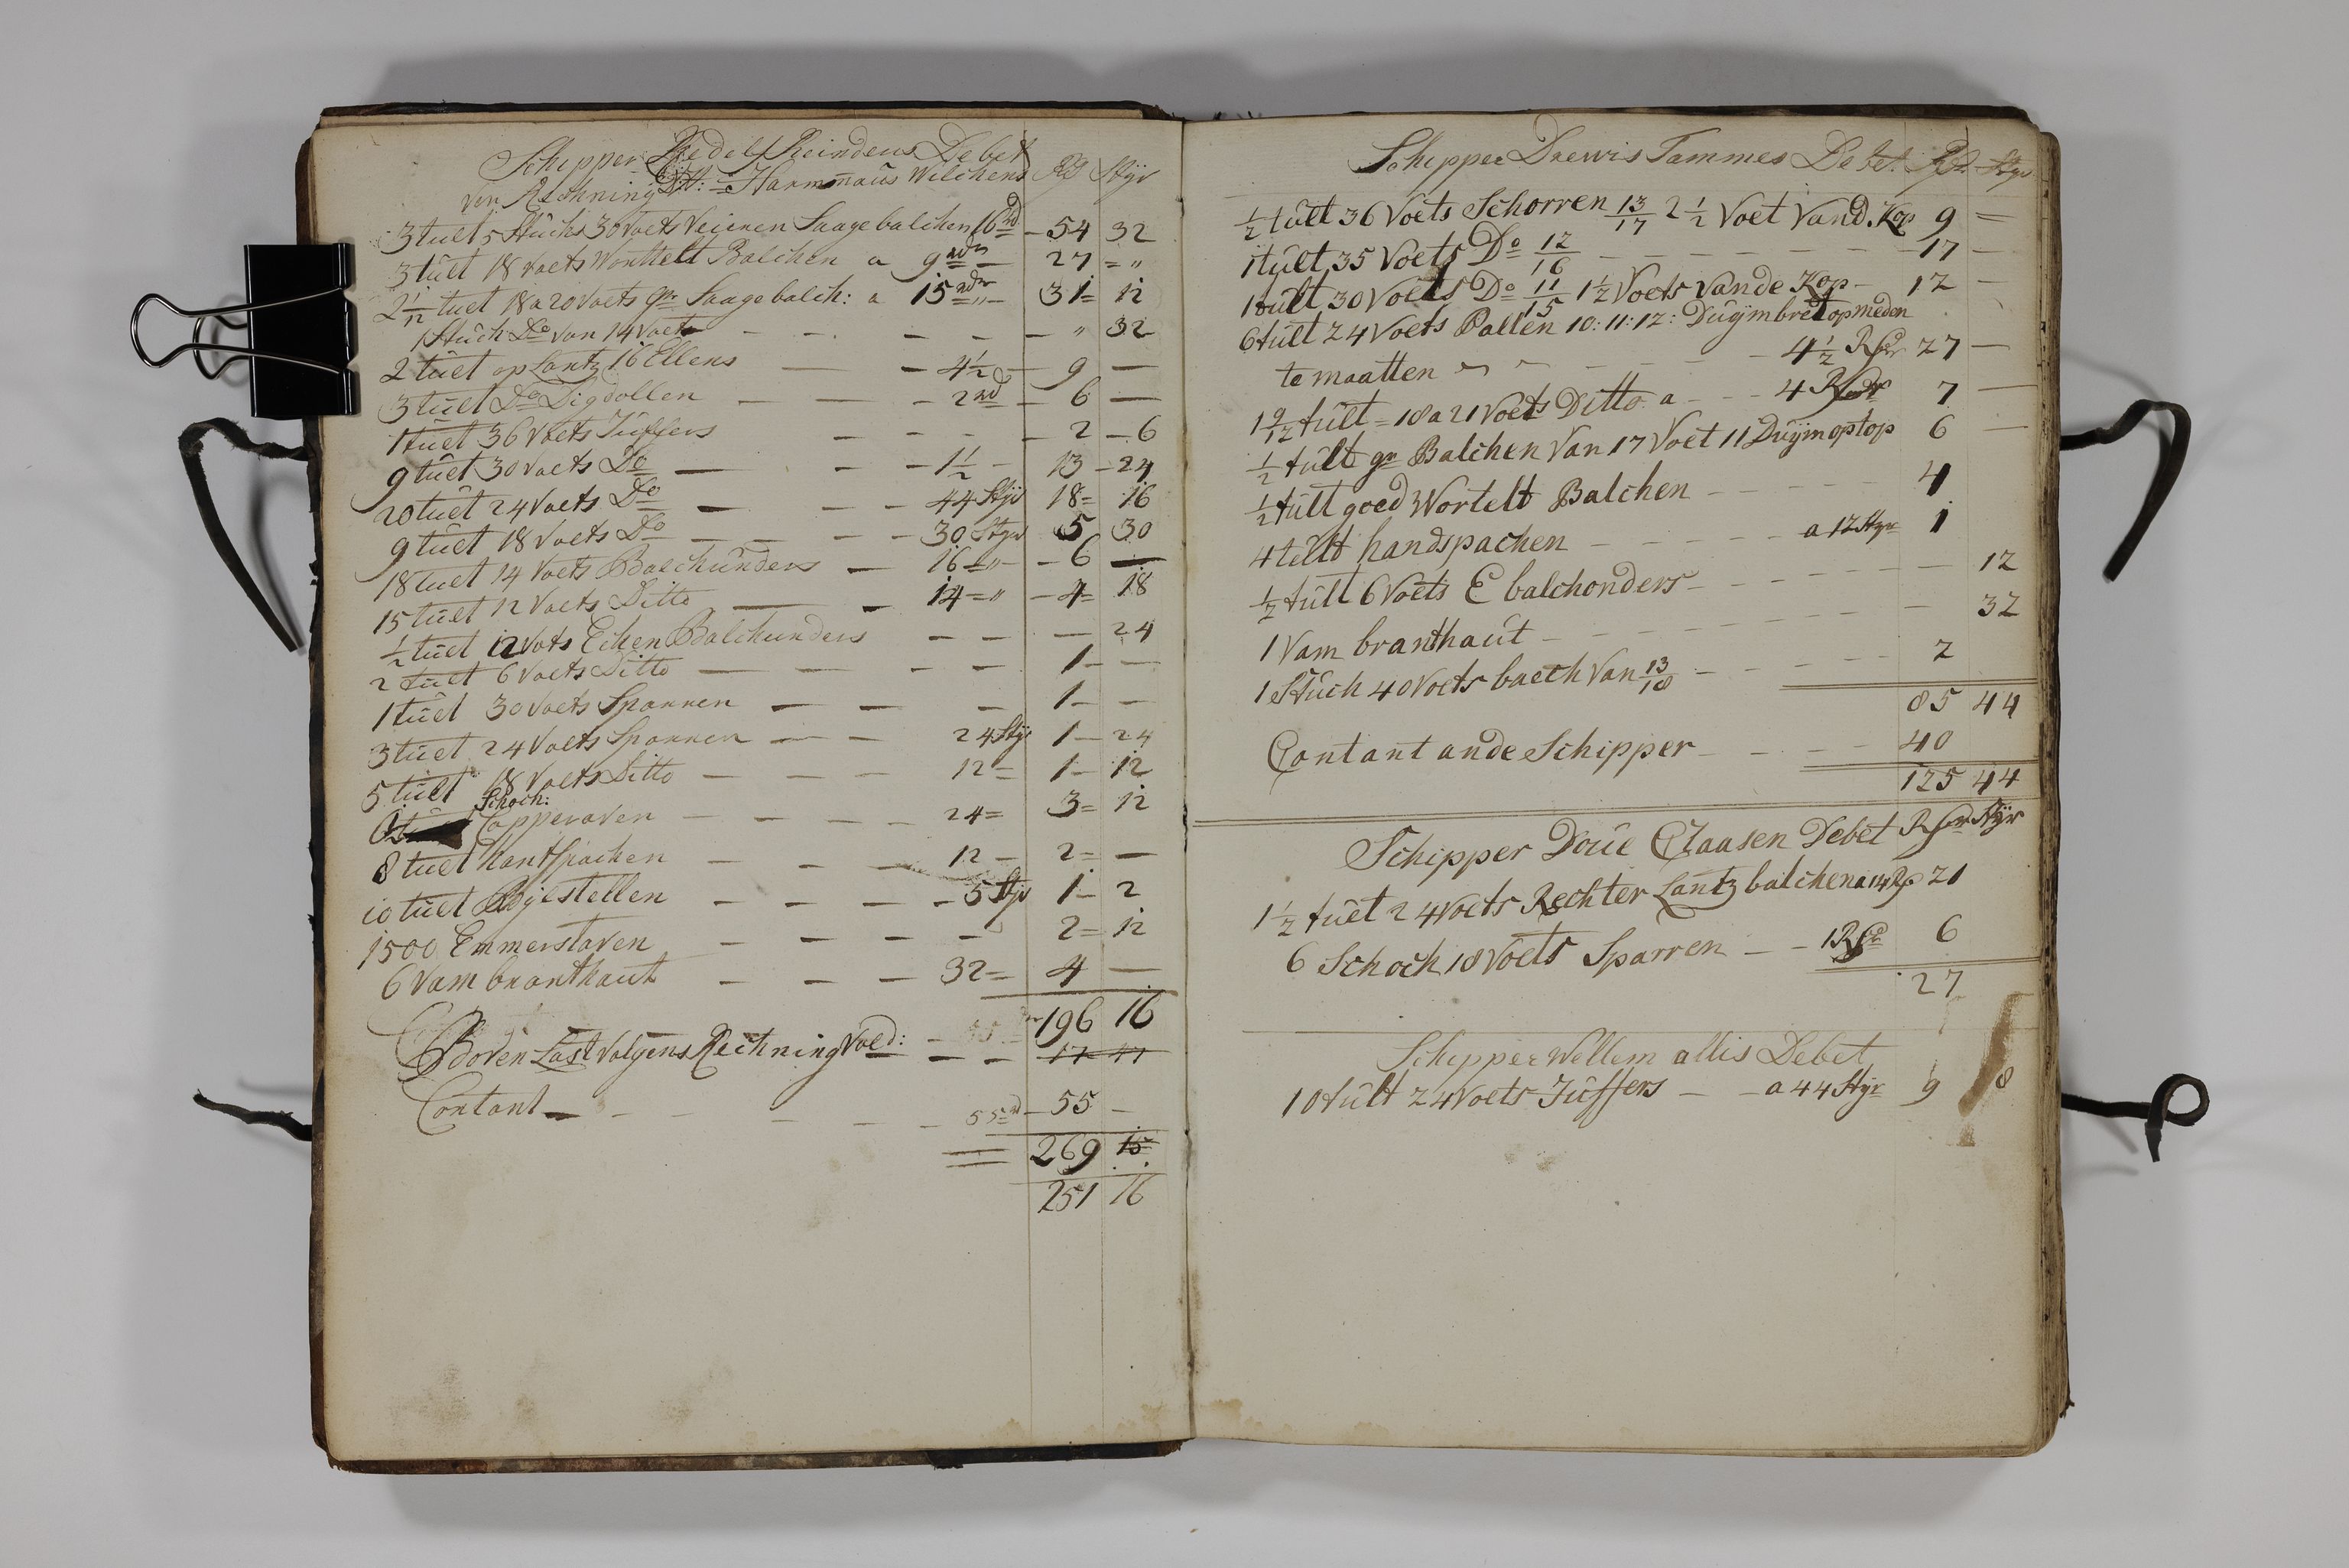 Schipper Reindens Debet Rd Stÿr
von Rechning Harmnaus Wilckens
3 tuct 5 Stucks 30 Voets Saagebalchen 16 rd 54 32
3 tult 18 Voets Wonttelt Balchen a 9 rdr 27 = "
2 1/12 tuct 18 a 20 Voets gr Saagebalch: a 15 rdr 31 = 12
1 Stuch Do von 14 Voets " 32
2 tuct op Lantz 16 Ellens 4 1/2 9 —
3 tuct Do Ligdollen 2 rd 6 —
1 tuct 36 Voets Juffers 2 — 6
9 tuct 30 Voets Do 1 1/2 13 — 24
20 tuct 24 Voets Do 44 Stÿr 18 = 16
9 tuct 18 Voets Do 30 Styr 5 30
18 tuct 14 Voets Balchunders 16 = " 6 —
15 tuct 12 Voets Ditto 14 = " 4 = 18
1/2 tuct 12 Vots Eichen Balchunders — 24
2 tuct 6 Voets Ditto 1 —
1 tuct 30 Voets Sparren 1 —
3 tuct 24 Voets Sparren 24 Stÿr 1 — 24
5 tuct 18 Voets Ditto 12 = 1 — 12
6 Schoch: Capperaven 24 = 3 = 12
8 tuct hantspachen 12 — 2 = —
10 tuct Bÿlstellen 5 Stÿr 1 — 2
1500 Emmerstaven 2 = 12
6 Vam branthaut 32 = 4 —
196 16
Boven Last Volgens Rechning Voed: 17 47
Contant 55 rd 55 —
269 15
251 16
Schipper Drewis Tammes Debet. Rdr Styr
1/2 tult 36 Voets Schorren 13/17 2 1/2 Voet Vand. Kop 9 =
1 tult 35 Voets Do 12/16 17 —
1 tult 30 Voets Do 11/15 1 1/2 Voets Vande Kop 12 —
6 tult 24 Voets Pallen 10: 11: 12: Duÿmbret opmeden
te maatten 4 1/2 Rdr 27 —
1 9/12 tult = 18 a 21 Voets Ditto a 4 Rdr 7 —
1/2 tult gr Balchen Van 17 Voet 11 Duÿm op top 6 —
1/2 tult goed Wortelt Balchen 4
4 tult handspachen a 12 Styr 1
1/2 tult 6 Voets E balchonders 12
1 Vam branthaut 32
1 Stuch 40 Voets balch Van 13/18 2
85 44
Contant ande Schipper 40
125 44
Schipper Doue Claasen Debet Rdr Stÿr
1 1/2 tuct 24 Voets Rechter Lantz balchen a 14 Rdr 21
6 Schoch 18 Voets Sparren 1 Rdr 6
27
Schipper Wellem allis Debet
10 tult 24 Voets Juffers a 44 Stÿr 9 8